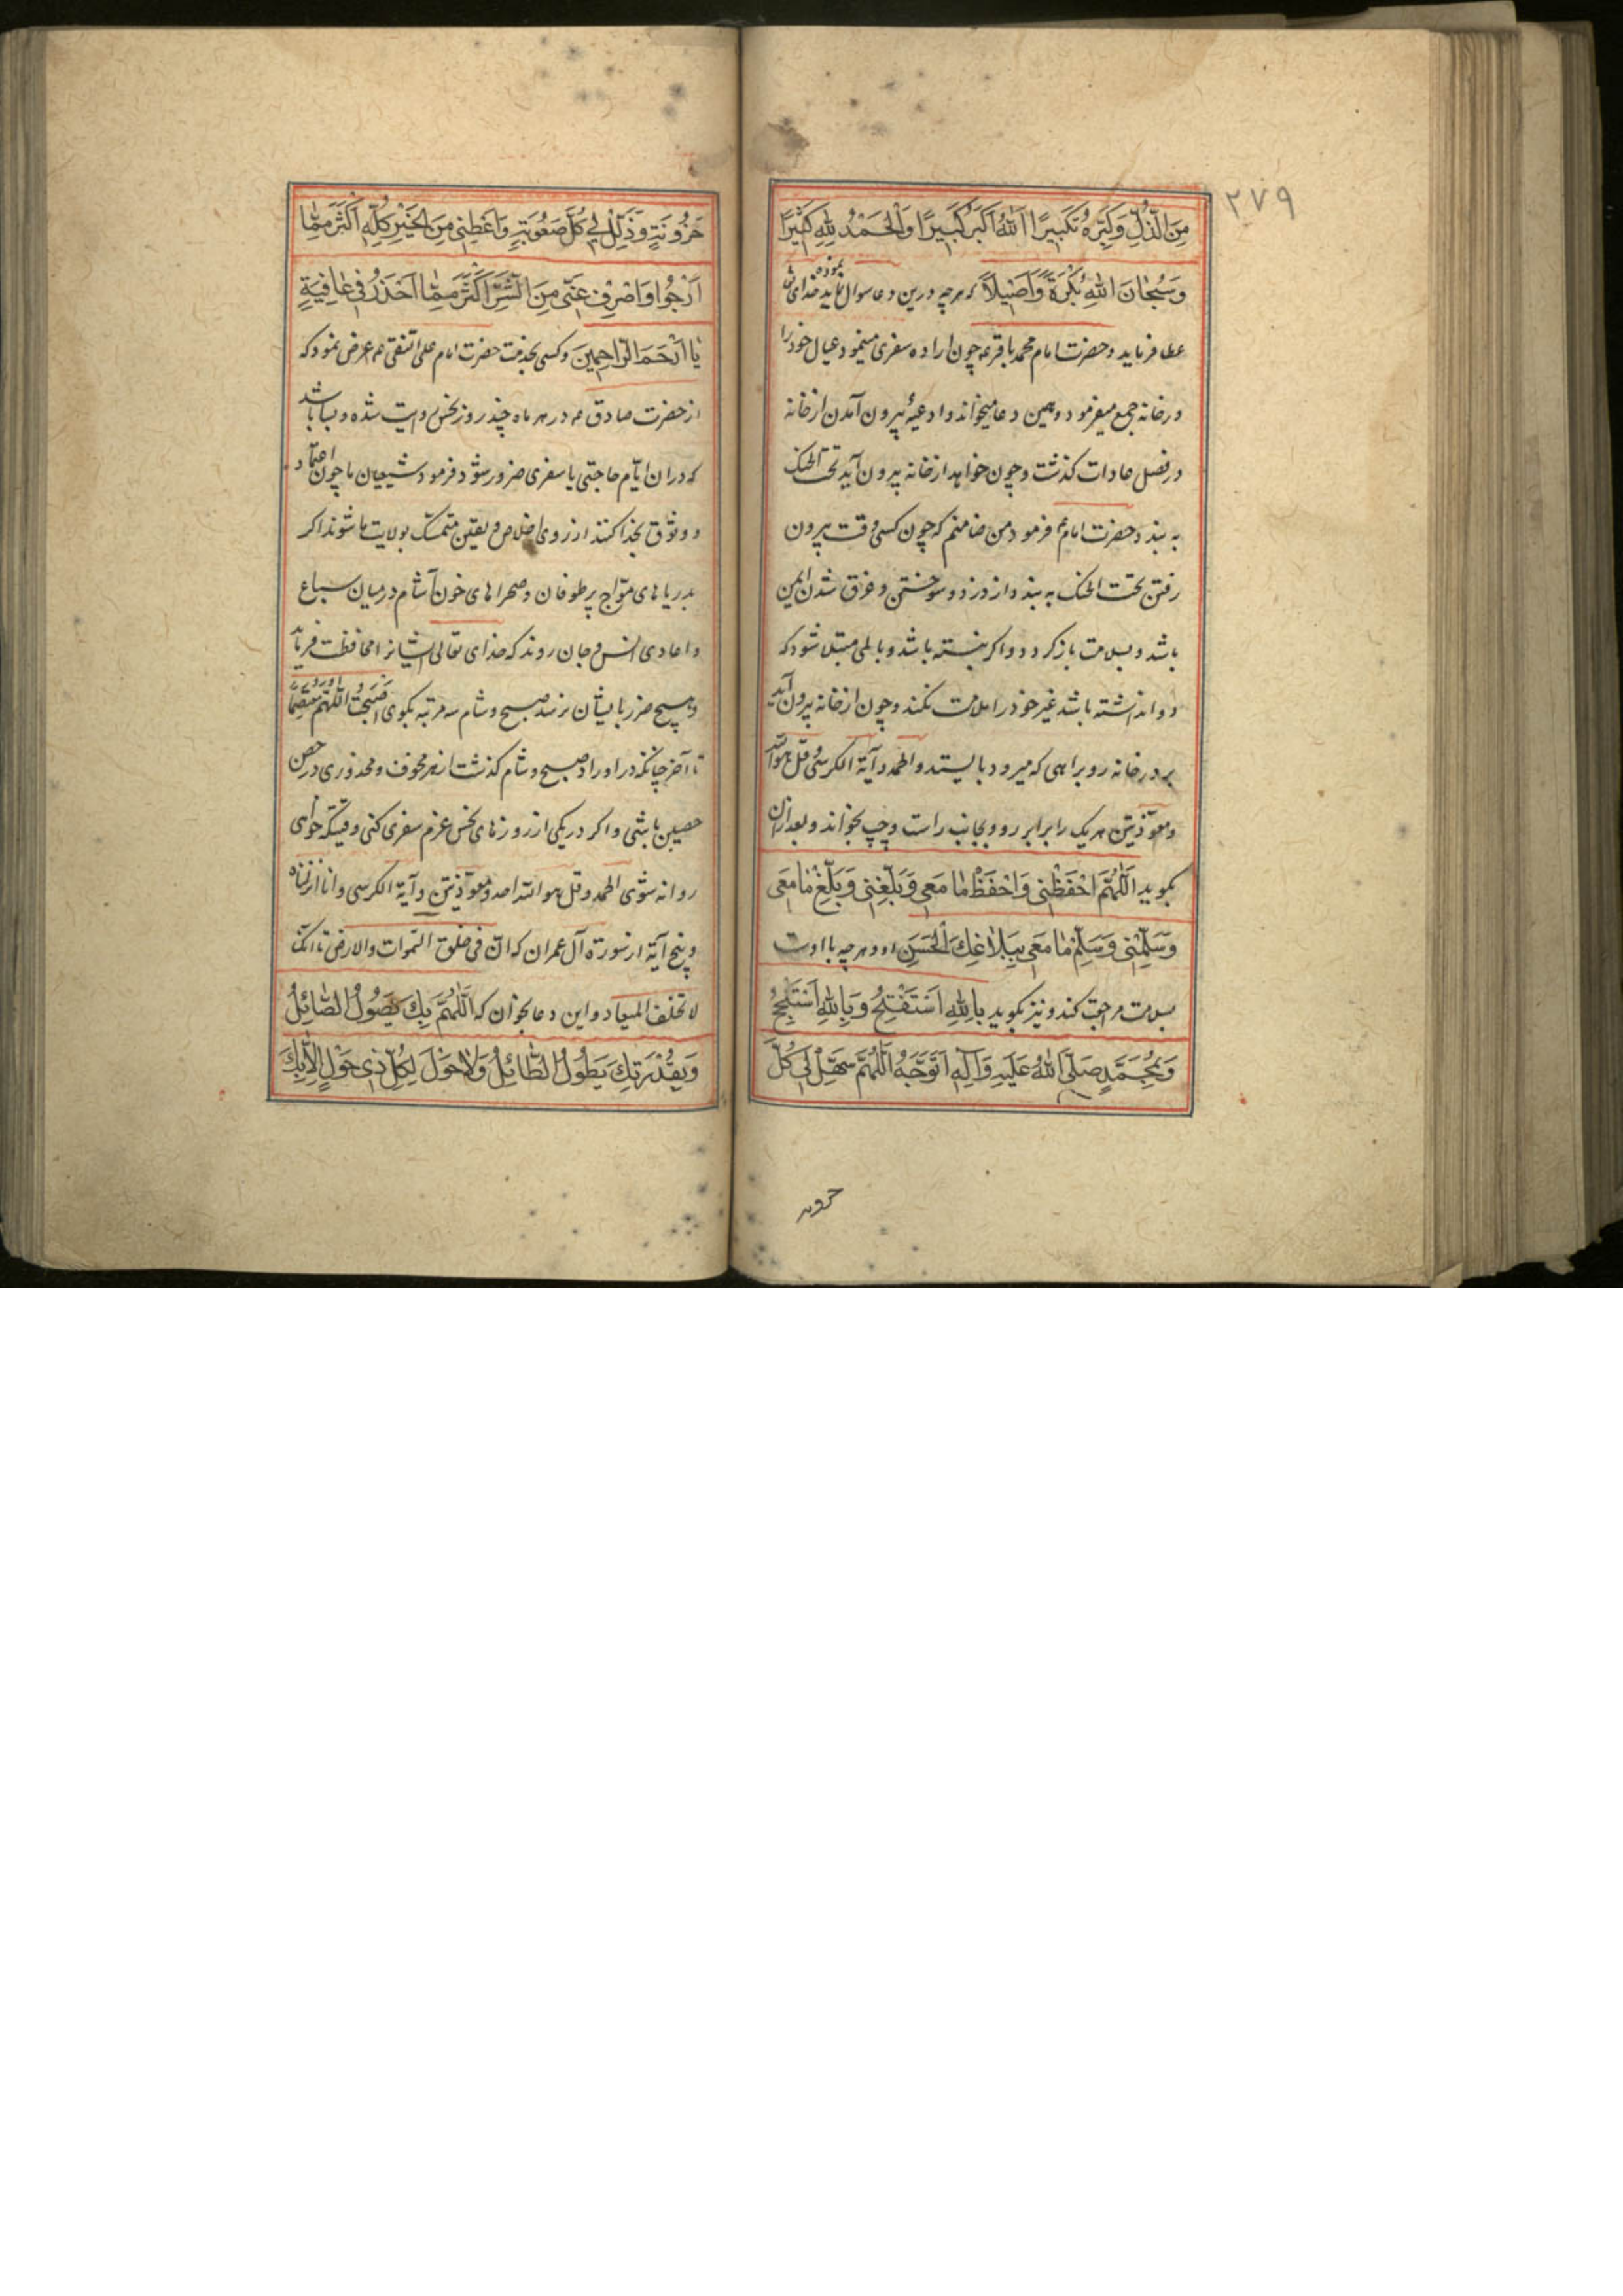 ۲۷۹
مِنَ الذُّلِّ وَكَبِّرْهُ تَكْبِيرًا اَللهُ اَكْبَرُ كَبِيرًا وَالْحَمْدُ لِلّهِ كَثِيرًا
وَسُبْحٰانَ اللهِ بُكْرَةً وَاَصِيلاً که هرچه درین دعا سوال نماید خدای
عطا فرماید و حضرت امام محمد باقر عه چون اراده سفری مینمود عیال خود را
در خانه جمع میفرمود و همین دعا میخواند و ادعیهٔ بیرون آمدن از خانه
در فصل عادات کذشت و چون خواهد از خانه بیرون آید تحت الحنک
به بندد و حضرت امام فرمود من ضامنم که چون کسی وقت بیرون
رفتن تحت الحنک به بندد از دزد و سوختن و غرق شدن ایمن
باشد و بسلامت باز کردد و اکر نبسته باشد و بالمی مبتلا شود که
دوا نداشته باشد غیر خود را ملامت نکند و چون از خانه بیرون آید
بر در خانه رو براهی که میرود بایستد و الحمد و آیة الکرسی و قل هو الله
و معوّذتین هر یک را برابر رو و بجانب راست و چپ بخواند و بعد ازان
بکوید اَللّٰهُمَّ احْفَظْنِی وَاحْفَظْ مٰا مَعِی وَبَلِّغْنِی وَبَلِّغْ مٰا مَعِی
وَسَلِّمْنِی وَسَلِّمْ مٰا مَعِی بِبَلاٰغِكَ الْحَسَنِ او و هر چه با اوست
بسلامت مراجعت کند و نیز بکوید بِاللهِ اَسْتَفْتِحُ وَبِاللهِ اَسْتَنْجِحُ
وَبِمُحَمَّدٍ صَلَّی اللهُ عَلَیْهِ وَآلِهِ اَتَوَجَّهُ اَللّٰهُمَّ سَهِّلْ لِی كُلَّ
حزونة
حُزُونَةٍ وَذَلِّلْ لِی كُلَّ صُعُوبَةٍ وَاَعْطِنِی مِنَ الْخَیْرِ كُلِّهِ اَكْثَرَ مِمّٰا
اَرْجُوا وَاصْرِفْ عَنِّی مِنَ الشَّرِّ اَكْثَرَ مِمّٰا اَحْذَرُ فِی عٰافِیَةٍ
یٰا اَرْحَمَ الرّٰاحِمِینَ و کسی بخدمت حضرت امام علی النقی عه عرض نمود که
از حضرت صادق عه در هر ماه چند روز نحس روایت شده و بسا باشد
که دران ایّام حاجتی یا سفری ضرور شود فرمود شیعیان ما چون اعتماد
و وثوق بخدا کنند از روی اخلاص و یقین متمسک بولایت ما شوند اکر
بدریاهای موّاج پر طوفان و صحراهای خون آشام در میان سباع
و اعادی انس و جان روند که خدای تعالی ایشانرا محافظت فرماید
و هیچ ضرر بایشان نرسد صبح و شام سه مرتبه بکوی اَصْبَحْتُ اللّٰهُمَّ مُعْتَصِمًا
تا آخر چنانکه در اوراد صبح و شام کذشت از هر مخوف و محذوری در حصن
حصین باشی و اکر در یکی از روزهای نحس عزم سفری کنی وقتیکه خواهی
روانه شوی الحمد و قل هو الله احد و معوّذتین و آیة الکرسی و انا انزلناه
و پنج آیة از سورة آل عمران که انّ فی خلق السموات والارض تا انّک
لا تخلف المیعاد و این دعا بخوان که اَللّٰهُمَّ بِكَ یَصُولُ الصّٰائِلُ
وَبِقُدْرَتِكَ یَطُولُ الطّٰائِلُ وَلاٰ حَوْلَ لِكُلِّ ذِی حَوْلٍ اِلاّٰ بِكَ